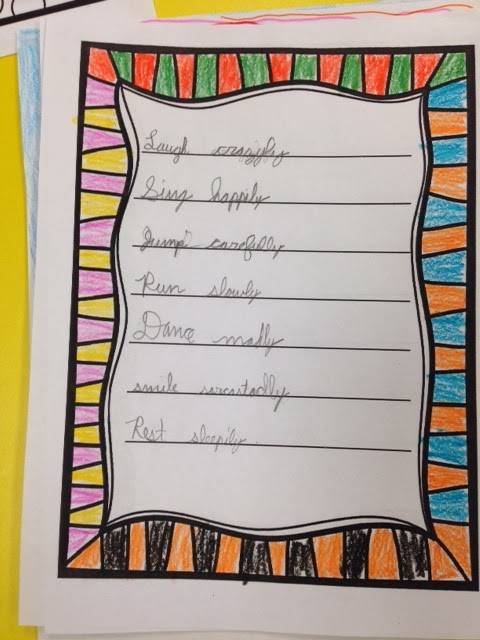 Laugh crazyly
Sing happily
Jump carefully
Run slowly
Dance madly
smile sarcastaclly
Rest sleepily